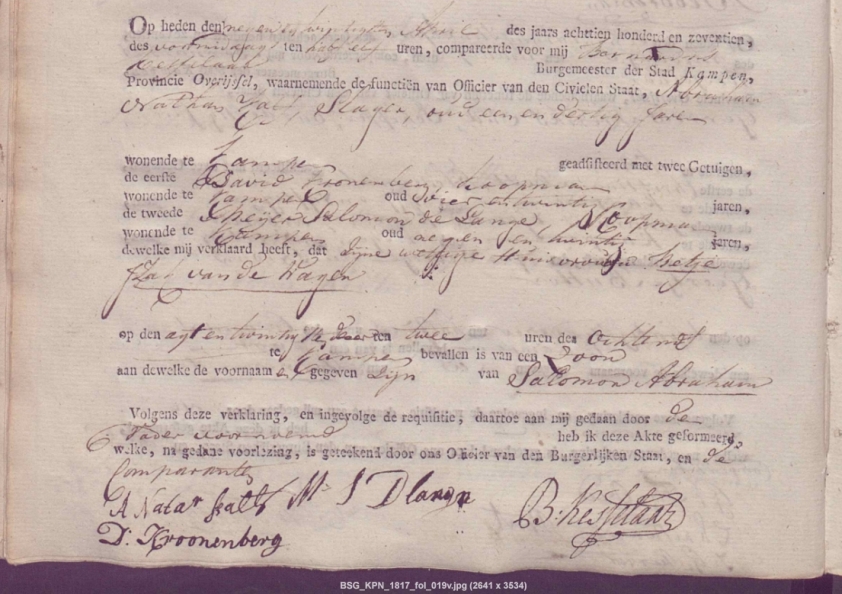 Op heden den negen en twintigsten April des jaars achttien honderd en zeventien,
des voormiddags ten half elf uren, compareerde voor mij Bernardus
Kesselaar Burgemeester der Stad Kampen,
Provincie Overijssel, waarnemende de functiën van Officier van den Civielen Staat, Abraham
Nathan Zalf, Slager, oud een en dertig Jaren
wonende te Kampen geadsisteerd met twee Getuigen,
de eerste David Kronenberg, koopman
wonende te Kampen oud vier en twintig jaren,
de tweede Salomon de Lange, Koopman
wonende te Kampen oud negen en twintig jaren,
dewelke mij verklaard heeft, dat zijne wettige Huisvrouw Hetje
Izac van de Hagen
op den agt en twintig dezer ten twee uren des Ochtends
te Kampen bevallen is van een Zoon
aan dewelke de voornaam en gegeven zijn van Salomon Abraham
Volgens deze verklaring, en ingevolge de requisitie, daartoe aan mij gedaan door de
Vader voornoemd heb ik deze Akte geformeerd,
welke, na gedane voorlezing, is geteekend door ons Officier van den Burgerlijken Staat, en de
Comparanten
A Natan M S D lange B. Kesselaar
D: Kroonenberg
BSG_KPN_1817_fol_019v.jpg (2641 x 3534)